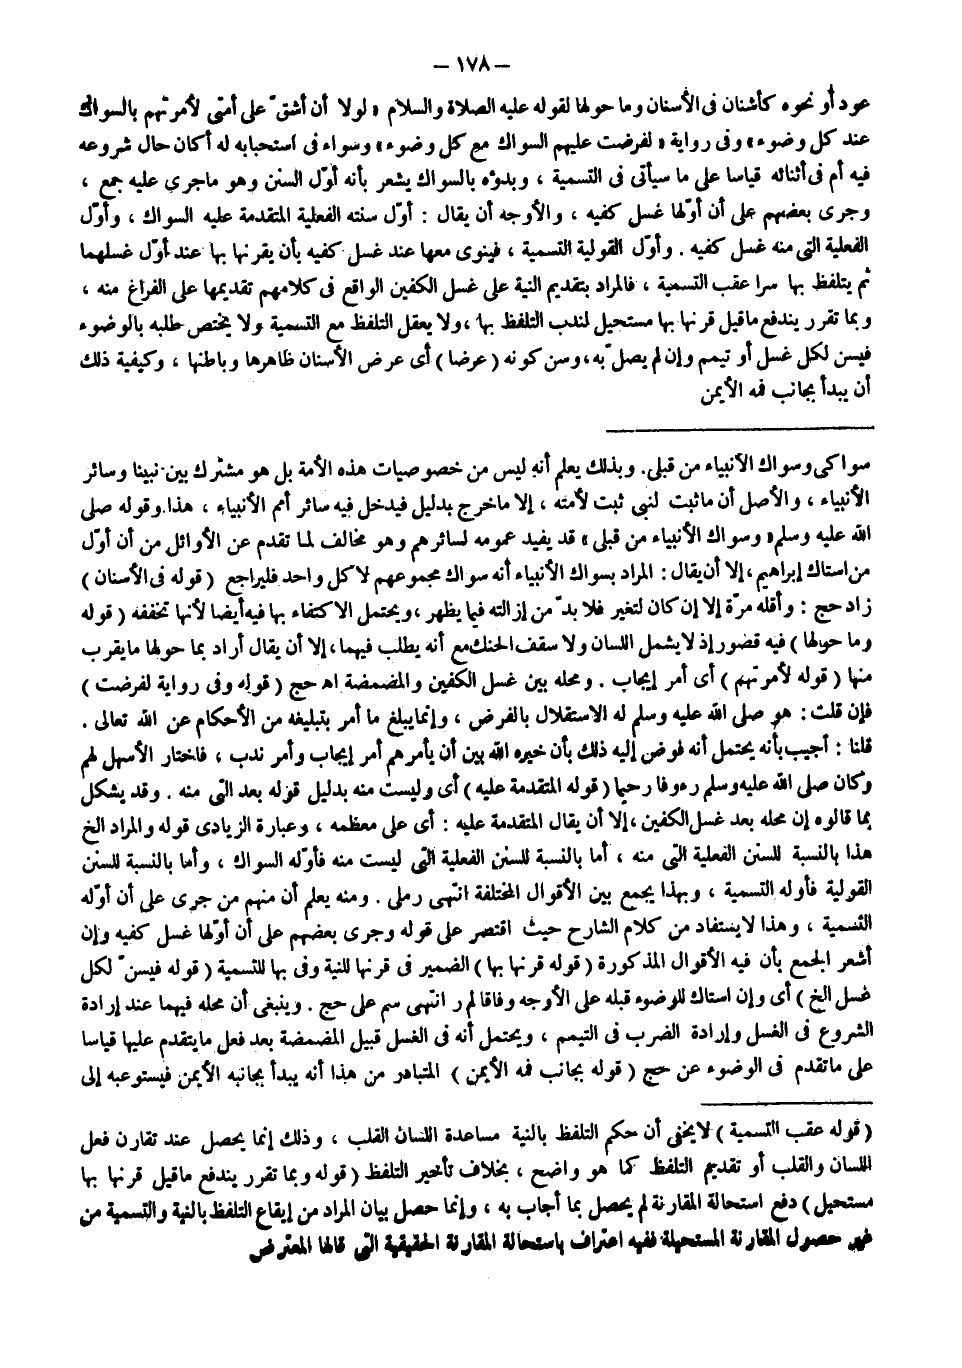 — ١٧٨ —
عود أو نحوه كأشنان فى الأسنان وما حولها لقوله عليه الصلاة والسلام « لولا أن أشقّ على أمتى لأمرتهم بالسواك
عند كل وضوء» وفى رواية « لفرضت عليهم السواك مع كل وضوء» وسواء فى استحبابه له أكان حال شروعه
فيه أم فى أثنائه قياسا على ما سيأتى فى التسمية ، وبدؤه بالسواك يشعر بأنه أوّل السنن وهو ماجرى عليه جمع ،
وجرى بعضهم على أن أوّلها غسل كفيه ، والأوجه أن يقال : أوّل سنته الفعلية المتقدمة عليه السواك ، وأوّل
الفعلية التى منه غسل كفيه . وأوّل القولية التسمية ، فينوى معها عند غسل كفيه بأن يقرنها بها عند أوّل غسلهما
ثم يتلفظ بها سرا عقب التسمية ، فالمراد بتقديم النية على غسل الكفين الواقع فى كلامهم تقديمها على الفراغ منه ،
وبما تقرر يندفع ماقيل قرنها بها مستحيل لندب التلفظ بها ،ولا يعقل التلفظ مع التسمية ولا يختص طلبه بالوضوء
فيسن لكل غسل أو تيمم وإن لم يصلّ به، وسن كونه ( عرضا ) أى عرض الأسنان ظاهرها وباطنها ، وكيفية ذلك
أن يبدأ بجانب فمه الأيمن
سواكى وسواك الأنبياء من قبلى. وبذلك يعلم أنه ليس من خصوصيات هذه الأمة بل هو مشترك بين نبينا وسائر
الأنبياء ، والأصل أن ماثبت لنبى ثبت لأمته ، إلا ماخرج بدليل فيدخل فيه سائر أمم الأنبياء ، هذا.وقوله صلى
الله عليه وسلم« وسواك الأنبياء من قبلى » قد يفيد عمومه لسائرهم وهو مخالف لما تقدم عن الأوائل من أن أوّل
من استاك إبراهيم، إلا أن يقال : المراد بسواك الأنبياء أنه سواك مجموعهم لا كل واحد فليراجع ( قوله فى الأسنان )
زاد حج : وأقله مرّة إلا إن كان لتغير فلا بدّ من إزالته فيما يظهر ،ويحتمل الاكتفاء بها فيه أيضا لأنها تخففه ( قوله
وما حولها ) فيه قصور إذ لا يشمل اللسان ولا سقف الحنك مع أنه يطلب فيهما، إلا أن يقال أراد بما حولها مايقرب
منها ( قوله لأمرتهم ) أى أمر إيجاب . ومحله بين غسل الكفين والمضمضة اه حج ( قوله وفى رواية لفرضت )
فإن قلت : هو صلى الله عليه وسلم له الاستقلال بالفرض ، وإنما يبلغ ما أمر بتبليغه من الأحكام عن الله تعالى .
قلنا : أجيب بأنه يحتمل أنه فوض إليه ذلك بأن خيره الله بين أن يأمرهم أمر إيجاب وأمر ندب ، فاختار الأسهل لهم
وكان صلى الله عليه وسلم رءوفا رحيما ( قوله المتقدمة عليه ) أى وليست منه بدليل قوله بعد التى منه . وقد يشكل
بما قالوه إن محله بعد غسل الكفين ،إلا أن يقال المتقدمة عليه : أى على معظمه ، وعبارة الزيادى قوله والمراد الخ
هذا بالنسبة للسنن الفعلية التى منه ، أما بالنسبة للسنن الفعلية التى ليست منه فأوّله السواك ، وأما بالنسبة للسنن
القولية فأوله التسمية ، وبهذا يجمع بين الأقوال المختلفة انتهى رملى . ومنه يعلم أن منهم من جرى على أن أوّله
التسمية ، وهذا لا يستفاد من كلام الشارح حيث اقتصر على قوله وجرى بعضهم على أن أوّلها غسل كفيه وإن
أشعر الجمع بأن فيه الأقوال المذكورة ( قوله قرنها بها ) الضمير فى قرنها للنية وفى بها للتسمية ( قوله فيسنّ لكل
غسل الخ ) أى وإن استاك للوضوء قبله على الأوجه وفاقا لم ر انتهى سم على حج . وينبغى أن محله فيهما عند إرادة
الشروع فى الغسل وإرادة الضرب فى التيمم ، ويحتمل أنه فى الغسل قبيل المضمضة بعد فعل مايتقدم عليها قياسا
على ماتقدم فى الوضوء عن حج ( قوله بجانب فمه الأيمن ) المتبادر من هذا أنه يبدأ بجانبه الأيمن فيستوعبه إلى
( قوله عقب التسمية ) لايخفى أن حكم التلفظ بالنية مساعدة اللسان القلب ، وذلك إنما يحصل عند تقارن فعل
اللسان والقلب أو تقديم التلفظ كما هو واضح ، بخلاف تأخير التلفظ ( قوله وبما تقرر يندفع ماقيل قرنها بها
مستحيل ) دفع استحالة المقارنة لم يحصل بما أجاب به ، وإنما حصل بيان المراد من إيقاع التلفظ بالنية والتسمية من
غير حصول المقارنة المستحيلة ففيه اعتراف باستحالة المقارنة الحقيقية التى قالها المعترض